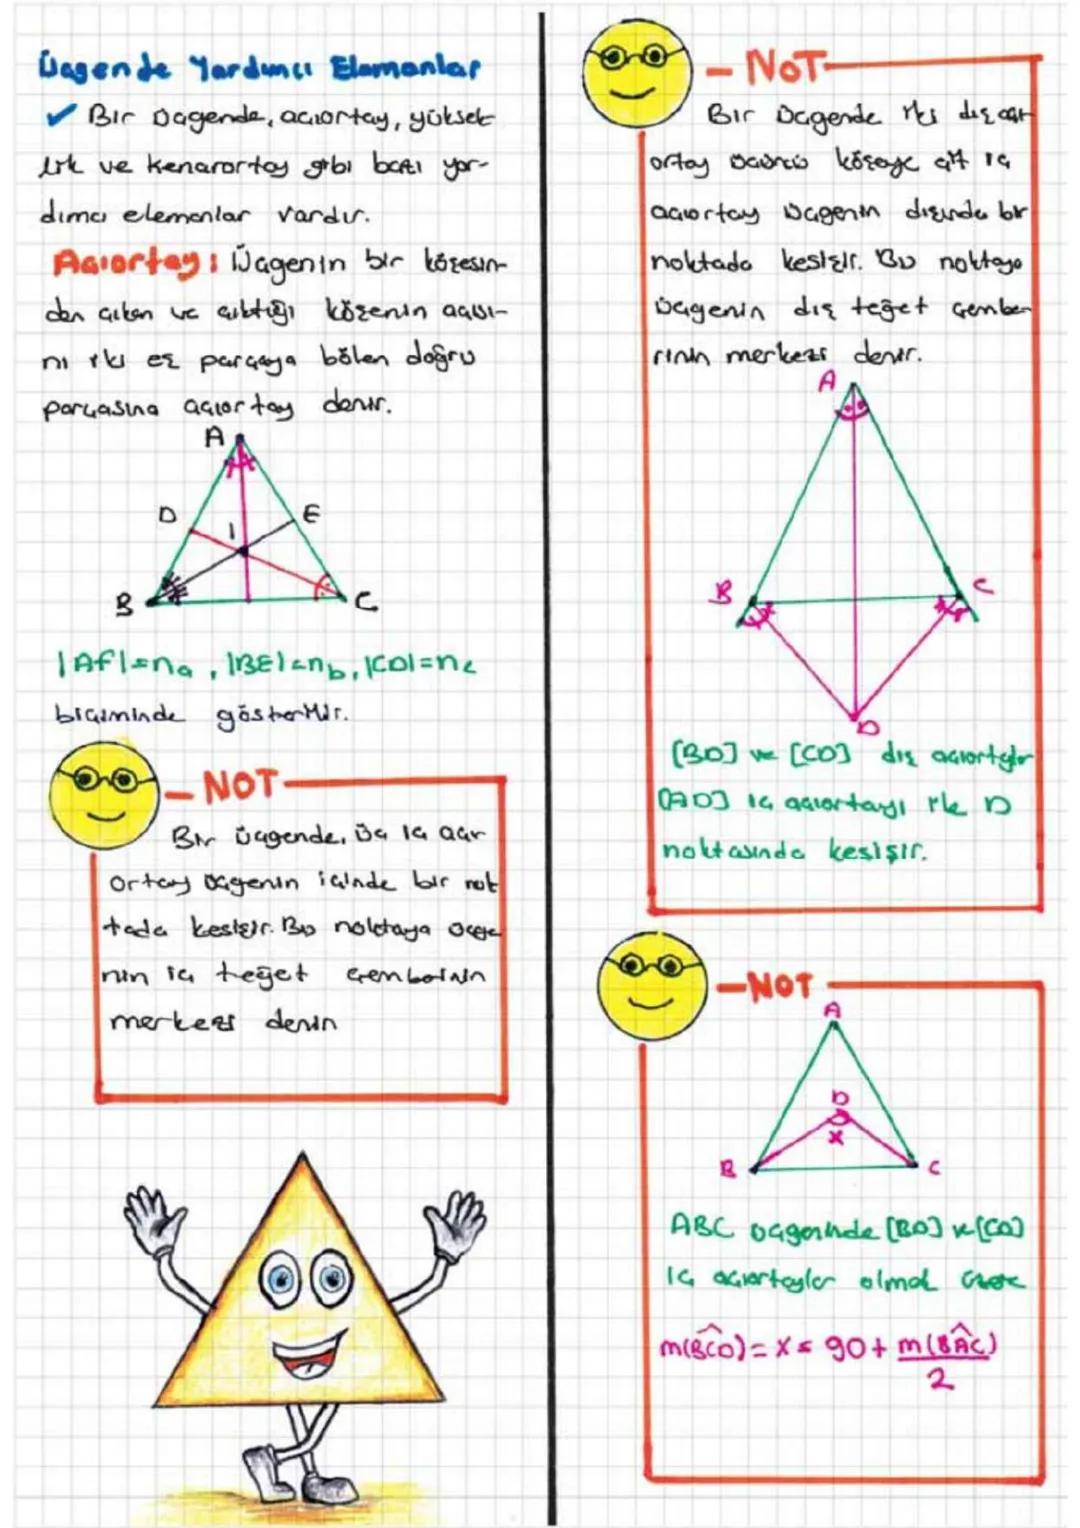 Üçgende Yardımcı Elemanlar
✓ Bir üçgende, açıortay, yüksek-
lik ve kenarortay gibi bazı yar-
dımcı elemanlar vardır.
Açıortay: Üçgenin bir köşesin-
den çıkan ve çıktığı köşenin açısı-
nı iki eş parçaya bölen doğru
parçasına açıortay denir.
A
D
E
I
B
C
|AF|=nₐ, |BE|=n_b, |CD|=n_c
biçiminde gösterilir.
NOT
Bir üçgende, üç iç açı
ortay üçgenin içinde bir nok
tada kesişir. Bu noktaya üçge
nin iç teğet çemberinin
merkezi denir
- NOT
Bir üçgende iki dış açı
ortay üçüncü köşeye ait iç
açıortay üçgenin dışında bir
noktada kesişir. Bu noktaya
üçgenin dış teğet çember
rinin merkezi denir.
A
B
C
D
[BD] ve [CD] dış açıortaylar
[AD] iç açıortayı ile D
noktasında kesişir.
- NOT
A
D
x
B
C
ABC üçgeninde [BD] ve [CD]
iç açıortaylar olmak üzere
m(BĈD) = x = 90 + m(BÂC)
2